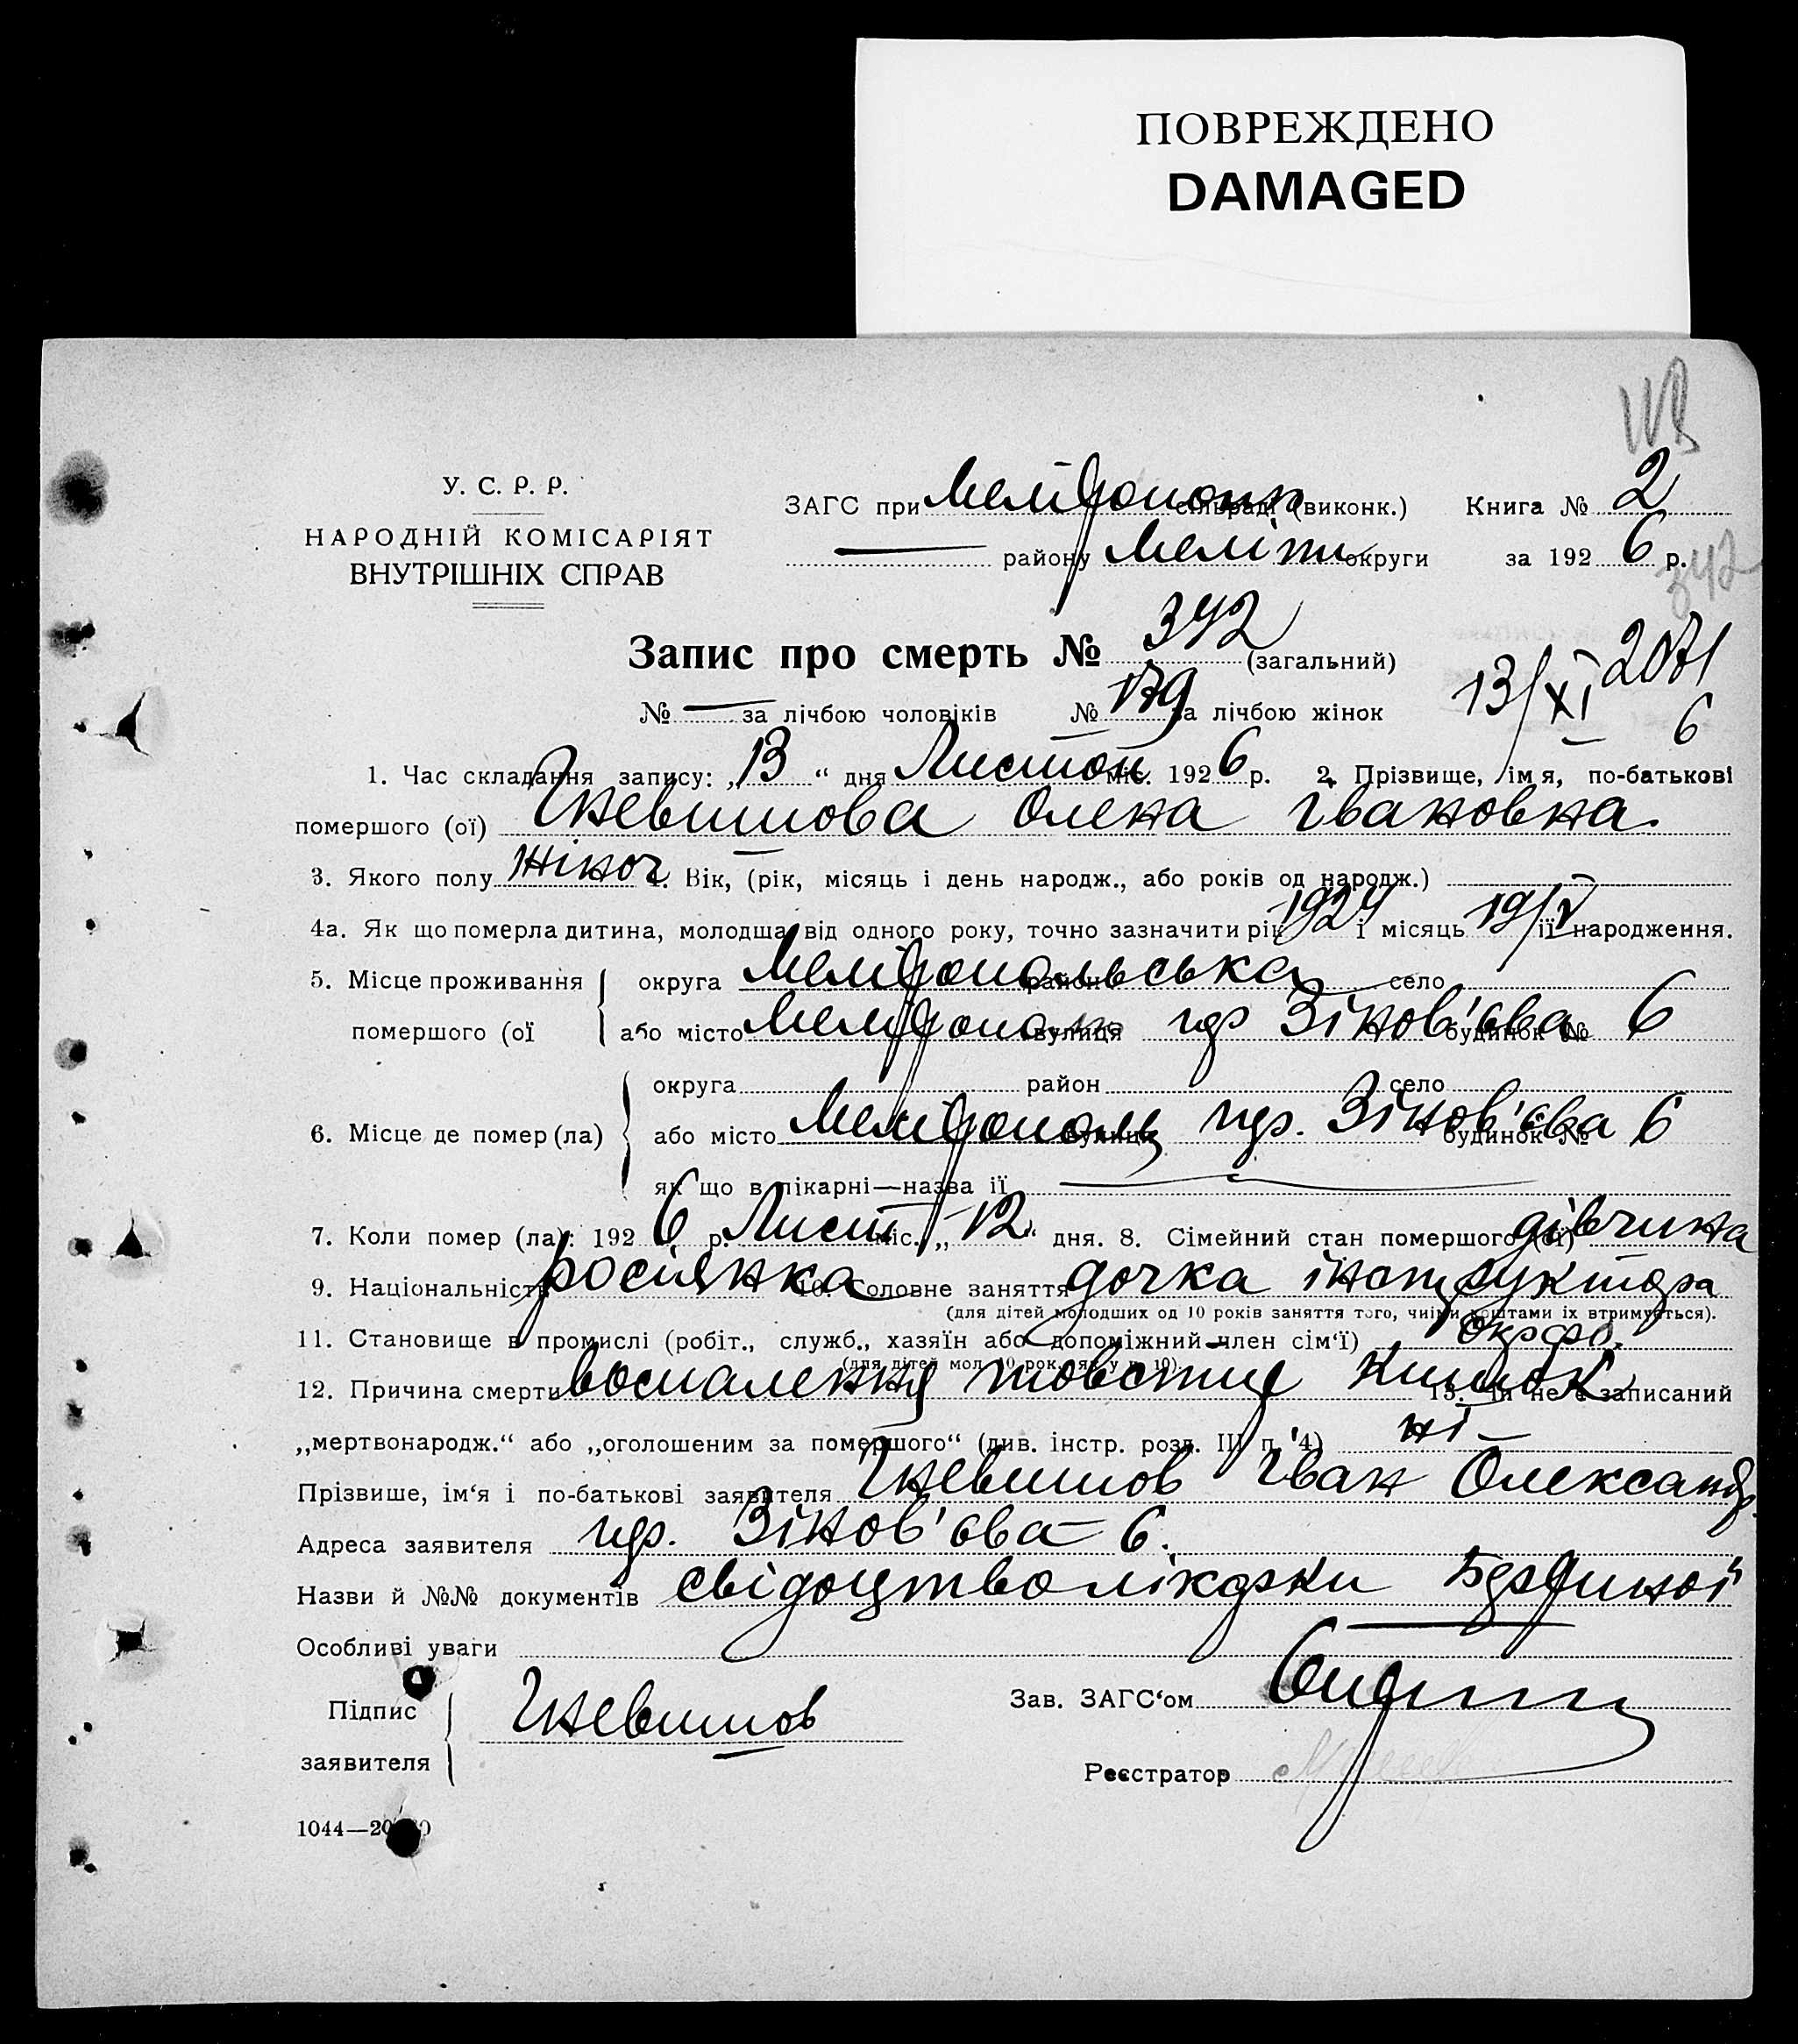 ПОВРЕЖДЕНО
DAMAGED
У. С. Р. Р.
НАРОДНІЙ КОМІСАРІЯТ
ВНУТРІШНІХ СПРАВ
ЗАГС при сільраді (виконк.) Книга № 2
— району Меліт округи за 1926 р.
342
Запис про смерть № 342 (загальний)
№ — за лічбою чоловіків № 179 за лічбою жінок
13/XI 6
1. Час складання запису: „13“ дня Листоп міс. 1926 р. 2. Прізвище, ім я, по-батькові
помершого (ої) Гневишова Олена Івановна.
3. Якого полу Жіноч 4. Вік, (рік, місяць і день народж., або років од народж.)
4а. Як що померла дитина, молодша від одного року, точно зазначити рік 1924 і місяць 19/V її народження.
5. Місце проживання помершого (ої
округа Мелітопольська район село
або місто Мелітополь вулиця Зінов'єва будинок № 6
6. Місце де помер (ла)
округа район село
або місто Мелітополь вулиця Зінов'єва будинок № 6
як що в лікарні—назва її —
7. Коли помер (ла): 1926 р. Лист міс. „12“ дня. 8. Сімейний стан помершого (ої) дівчина
9. Національність росіянка 10. Головне заняття дочка інструктора
(для дітей молодших од 10 років заняття того, чиїми коштами їх втримується).
11. Становище в промислі (робіт., служб., хазяїн або допоміжний член сім'ї) Окрфо.
(для дітей мол. 10 рок. як у п. 10).
12. Причина смерти воспалення товстих кишок 13. Чи не є записаний
„мертвонародж.“ або „оголошеним за помершого“ (див. інстр. розд. III п. 4) ні —
Прізвише, ім'я і по-батькові заявителя Гневишов Іван Олександр.
Адреса заявителя Зінов'єва – 6.
Назви й №№ документів свідоцтво лікарки
Особливі уваги
Підпис заявителя Гневишов
Зав. ЗАГС'ом
Реєстратор
1044—20